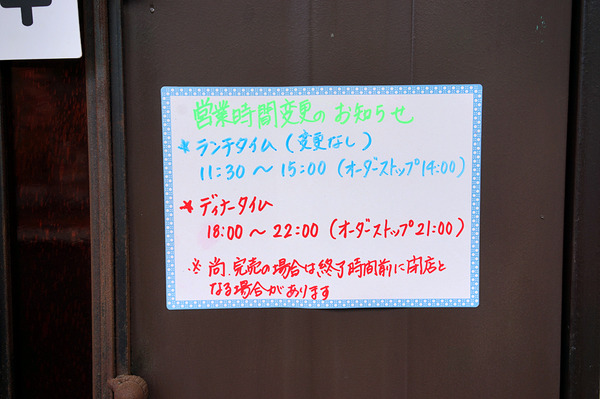 営業時間変更のお知らせ
★ランチタイム(変更なし)
11:30～15:00(オーダーストップ14:00)
★ディナータイム
18:00～22:00(オーダーストップ21:00)
※尚、完売の場合は終了時間前に閉店と
なる場合があります